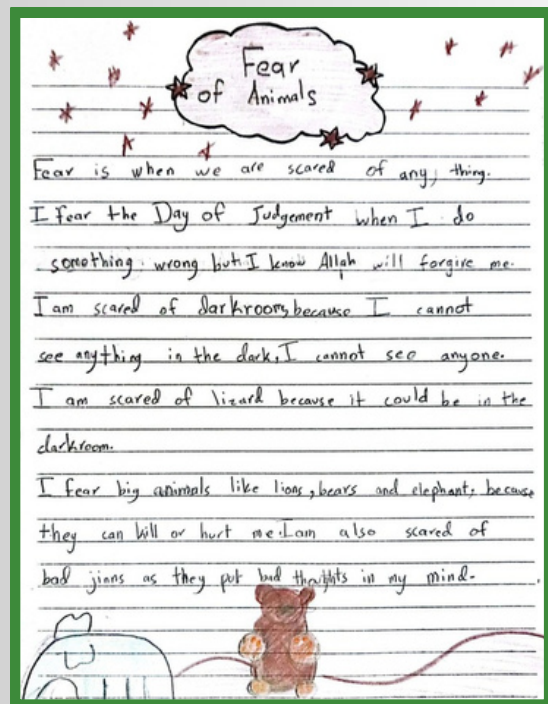 Fear
of Animals
Fear is when we are scared of any thing.
I fear the Day of Judgement when I do
something wrong but I know Allah will forgive me.
I am scared of darkroom, because I cannot
see anything in the dark, I cannot see anyone.
I am scared of lizard because it could be in the
darkroom.
I fear big animals like lions, bears and elephant, because
they can kill or hurt me. I am also scared of
bad jinns as they put bad thoughts in my mind.